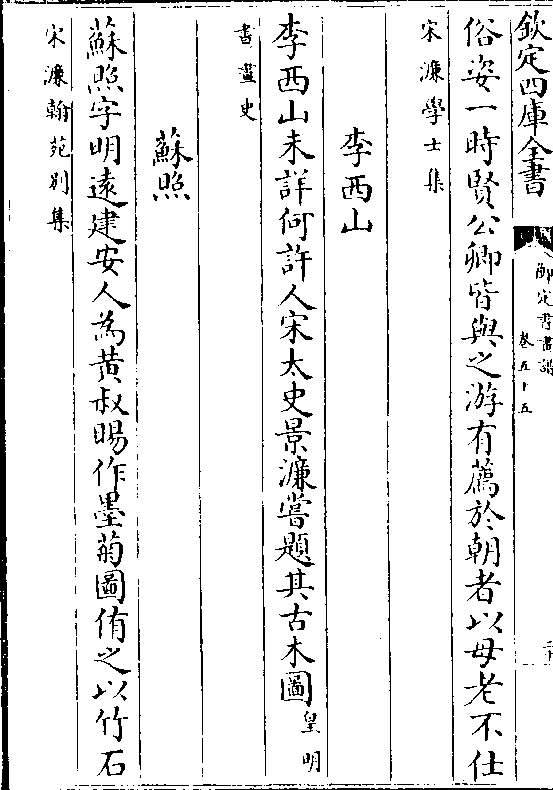 欽定四庫全書
御定書畫譜
卷五十五
俗姿一時賢公卿皆與之游有薦於朝者以母老不仕
宋濂學士集
李西山
李西山未詳何許人宋太史景濂嘗題其古木圖皇明
書畫史
蘇照
蘇照字明遠建安人為黃叔暘作墨菊圖侑之以竹石
宋濂翰苑別集